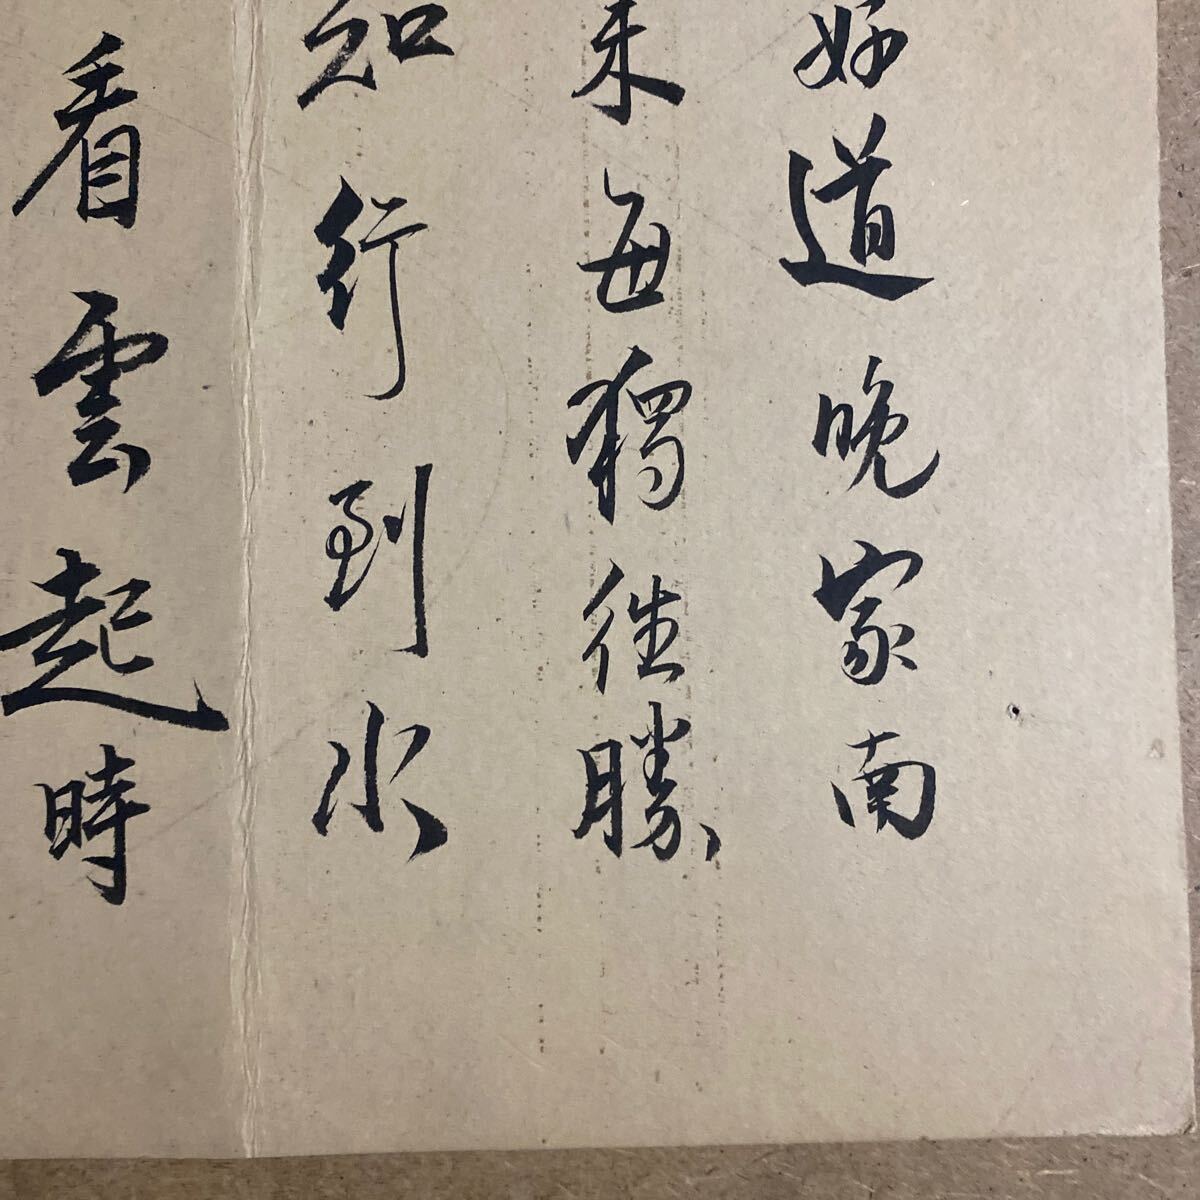 好道晚家南
来每獨往勝
知行到水
看雲起時